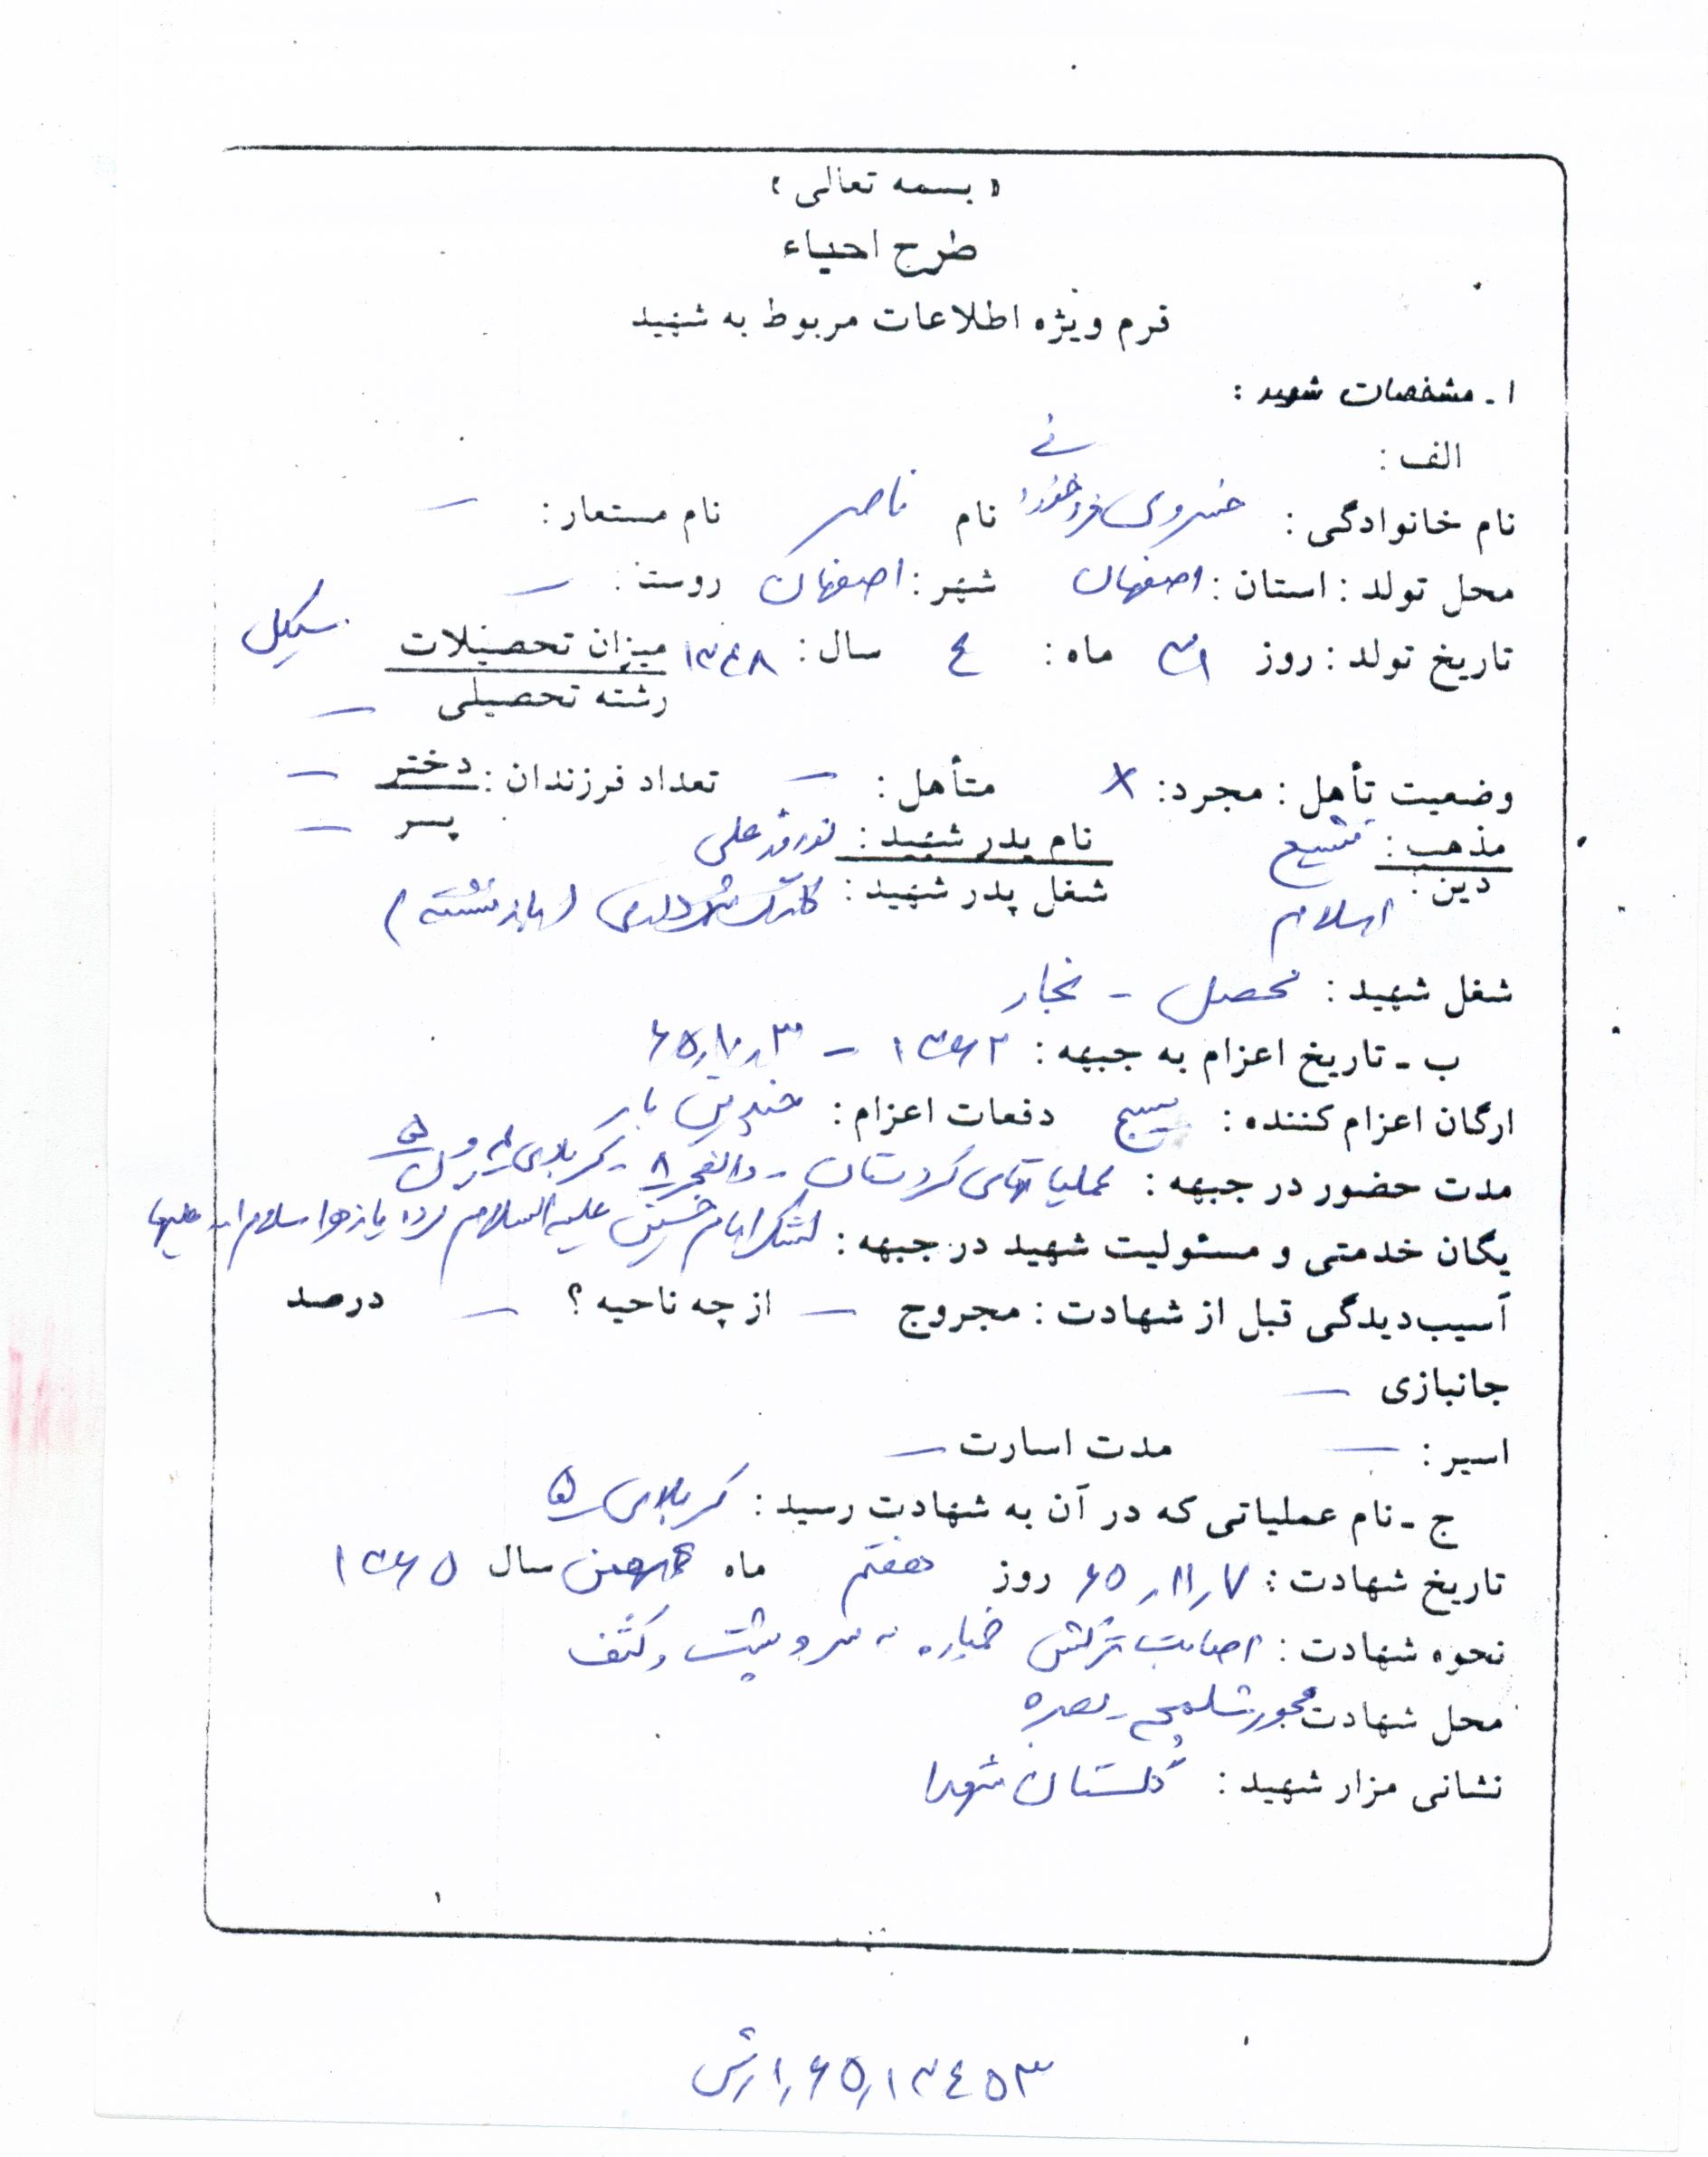 « بسمه تعالی »
طرح احیاء
فرم ویژه اطلاعات مربوط به شهید
۱ـ مشخصات شهید :
الف :
نام خانوادگی : خسروی فرد خوزانی نام ناصر نام مستعار: —
محل تولد : استان : اصفهان شهر : اصفهان روستا : —
تاریخ تولد : روز ۳۱ ماه : ٤ سال : ۱۳٤۸ میزان تحصیلات سیکل
رشته تحصیلی —
وضعیت تأهل : مجرد : × متأهل : — تعداد فرزندان : دختر —
پسر —
مذهب : تشیع نام پدر شهید : نوروزعلی
دین : اسلام شغل پدر شهید : کارمند شهرداری (بازنشسته)
شغل شهید : محصل - نجار
ب ـ تاریخ اعزام به جبهه : ۱۳۶۲ - ۶۵٫۱۰٫۳
ارگان اعزام کننده : بسیج دفعات اعزام : چندین بار
مدت حضور در جبهه : عملیاتهای کردستان - والفجر ۸ - کربلای ٤ و ۵
یگان خدمتی و مسئولیت شهید در جبهه : لشکر امام حسین علیه السلام گردان یا زهرا سلام ا... علیها
آسیب‌دیدگی قبل از شهادت : مجروح — از چه ناحیه ؟ — درصد
جانبازی —
اسیر : — مدت اسارت —
ج ـ نام عملیاتی که در آن به شهادت رسید : کربلای ۵
تاریخ شهادت : ۶۵٫۱۱٫۷ روز هفتم ماه بهمن سال ۱۳۶۵
نحوه شهادت : اصابت ترکش خمپاره به سر و پشت و کتف
محل شهادت محور شلمچه - بصره
نشانی مزار شهید : گلستان شهدا
۱٫۶۵٫۱۳٤۵۳٫ش